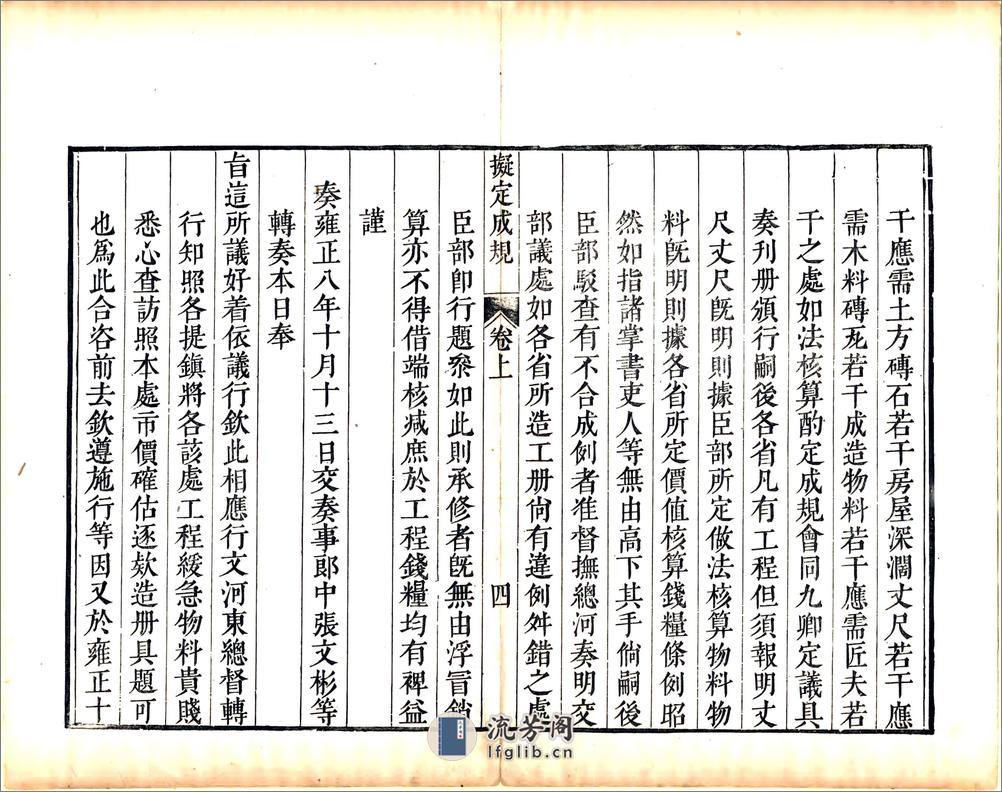 干應需土方磚石若干房屋深濶丈尺若干應
需木料磚瓦若干成造物料若干應需匠夫若
干之處如法核算酌定成規會同九卿定議具
奏刊册頒行嗣後各省凡有工程但須報明丈
尺丈尺旣明則據臣部所定做法核算物料物
料旣明則據各省所定價值核算錢糧條例昭
然如指諸掌書吏人等無由高下其手倘嗣後
臣部駁查有不合成例者准督撫總河奏明交
部議處如各省所造工册尙有違例舛錯之處
擬定成規
卷上
四
臣部卽行題叅如此則承修者旣無由浮冒銷
算亦不得借端核减庶於工程錢糧均有裨益
謹
奏雍正八年十月十三日交奏事郎中張文彬等
轉奏本日奉
旨這所議好着依議行欽此相應行文河東總督轉
行知照各提鎮將各該處工程緩急物料貴賤
悉心查訪照本處市價確估逐欵造册具題可
也爲此合咨前去欽遵施行等因又於雍正十
流芳阁
lfglib.cn